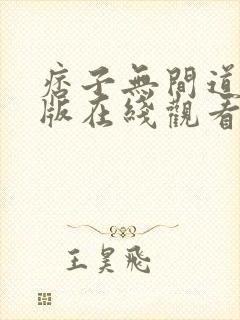 痞子無間道
版在綫觀看
王昊飛